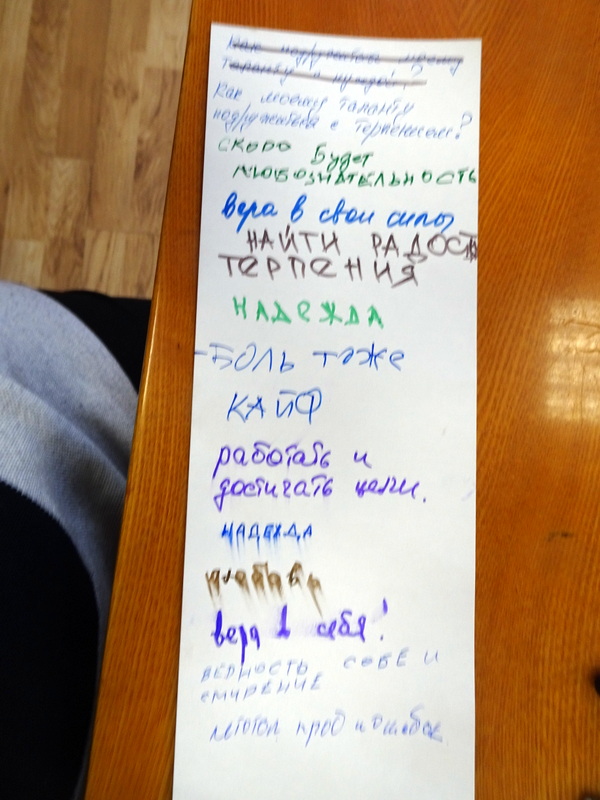 Как подружиться моему
таланту и нуждой?
Как моему таланту
подружиться с терпением?
СКОРО будет
ЛЮБОЗНАТЕЛЬНОСТЬ
вера в свои силы
НАЙТИ РАДОСТЬ
ТЕРПЕНИЯ
НАДЕЖДА
-БОЛЬ тоже
КАЙФ
работать и
достигать цели.
НАДЕЖДА
вера в себя!
ВЕРНОСТЬ СЕБЕ И
СМИРЕНИЕ
методом проб и ошибок